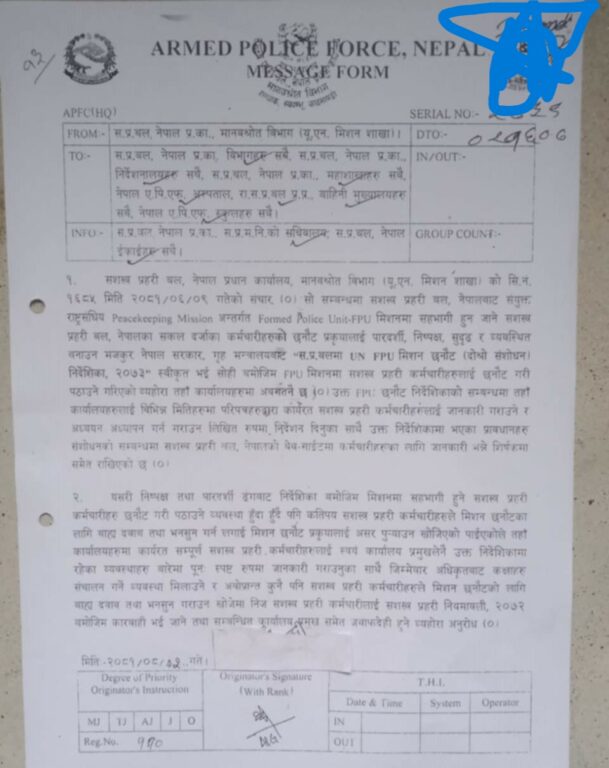 ARMED POLICE FORCE, NEPAL
मानवश्रोत विभाग
MESSAGE FORM
APFC(HQ)
SERIAL NO:-
FROM:- स.प्र.बल, नेपाल प्र.का., मानवश्रोत विभाग (यू.एन. मिशन शाखा)।
DTO:-
TO:- स.प्र.बल, नेपाल प्र.का, विभागहरु सबै, स.प्र.बल, नेपाल प्र.का.,
IN/OUT:-
निर्देशनालयहरु सबै, स.प्र.बल, नेपाल प्र.का., महाशाखाहरु सबै,
नेपाल ए.पि.एफ. अस्पताल, रा.स.प्र.बल प्र.प्र., बाहिनी मुख्यालयहरु
सबै, नेपाल ए.पि.एफ. स्कुलहरु सबै।
INFO:- स.प्र.बल नेपाल प्र.का., स.प्र.म.नि.को सचिवालय, स.प्र.बल, नेपाल
GROUP COUNT:-
ईकाईहरु सबै।
१. सशस्त्र प्रहरी बल, नेपाल प्रधान कार्यालय, मानवश्रोत विभाग (यू.एन. मिशन शाखा) को सि.नं.
१६८५ मिति २०८१/०६/०९ गतेको संचार (०) सो सम्बन्धमा सशस्त्र प्रहरी बल, नेपालबाट संयुक्त
राष्ट्रसंघिय Peacekeeping Mission अन्तर्गत Formed Police Unit-FPU मिशनमा सहभागी हुन जाने सशस्त्र
प्रहरी बल, नेपालका सकल दर्जाका कर्मचारीहरुको छनौट प्रकृयालाई पारदर्शी, निष्पक्ष, सुदृढ र व्यवस्थित
बनाउन मजकुर नेपाल सरकार, गृह मन्त्रालयबाट "स.प्र.बलमा UN FPU मिशन छनौट (दोश्रो संशोधन)
निर्देशिका, २०७३" स्वीकृत भई सोही बमोजिम FPU मिशनमा सशस्त्र प्रहरी कर्मचारीहरुलाई छनौट गरी
पठाउने गरिएको व्यहोरा तहाँ कार्यालयहरुमा अवगतनै छ (०) उक्त FPU छनौट निर्देशिकाको सम्बन्धमा तहाँ
कार्यालयहरुलाई बिभिन्न मितिहरुमा परिपत्रहरुद्वारा कार्यरत सशस्त्र प्रहरी कर्मचारीहरुलाई जानकारी गराउने र
अध्ययन अध्यापन गर्न गराउन लिखित रुपमा निर्देशन दिनुका साथै उक्त निर्देशिकामा भएका प्रावधानहरु
संशोधनको सम्बन्धमा सशस्त्र प्रहरी बल, नेपालको वेब-साईटमा कर्मचारीहरुका लागि जानकारी भन्ने शिर्षकमा
समेत राखिएको छ (०)
२. यसरी निष्पक्ष तथा पारदर्शी ढंगबाट निर्देशिका बमोजिम मिशनमा सहभागी हुने सशस्त्र प्रहरी
कर्मचारीहरु छनौट गरी पठाउने व्यवस्था हुँदा हुँदै पनि कतिपय सशस्त्र प्रहरी कर्मचारीहरुले मिशन छनौटका
लागि बाह्य दबाव तथा भनसुन गर्न लगाई मिशन छनौट प्रकृयालाई असर पुऱ्याउन खोजिएको पाईएकोले तहाँ
कार्यालयहरुमा कार्यरत सम्पूर्ण सशस्त्र प्रहरी कर्मचारीहरुलाई स्वयं कार्यालय प्रमुखलेनै उक्त निर्देशिकामा
रहेका व्यवस्थाहरु बारेमा पूनः स्पष्ट रुपमा जानकारी गराउनुका साथै जिम्मेवार अधिकृतबाट कक्षाहरु
संचालन गर्ने व्यवस्था मिलाउने र अबोप्रान्त कुनै पनि सशस्त्र प्रहरी कर्मचारीहरुले मिशन छनौटको लागि
बाह्य दबाव तथा भनसुन गराउन खोजेमा निज सशस्त्र प्रहरी कर्मचारीलाई सशस्त्र प्रहरी नियमावली, २०७२
बमोजिम कारवाही भई जाने तथा सम्बन्धित कार्यालय प्रमुख समेत जवाफदेही हुने व्यहोरा अनुरोध (०)
मिति २०८१/०८/१२ गते।
Degree of Priority
Originator's Instruction
Originator's Signature
(With Rank)
T.H.I.
Date & Time System Operator
MJ TJ AJ J O
IN
Reg.No. 970
DIG
OUT